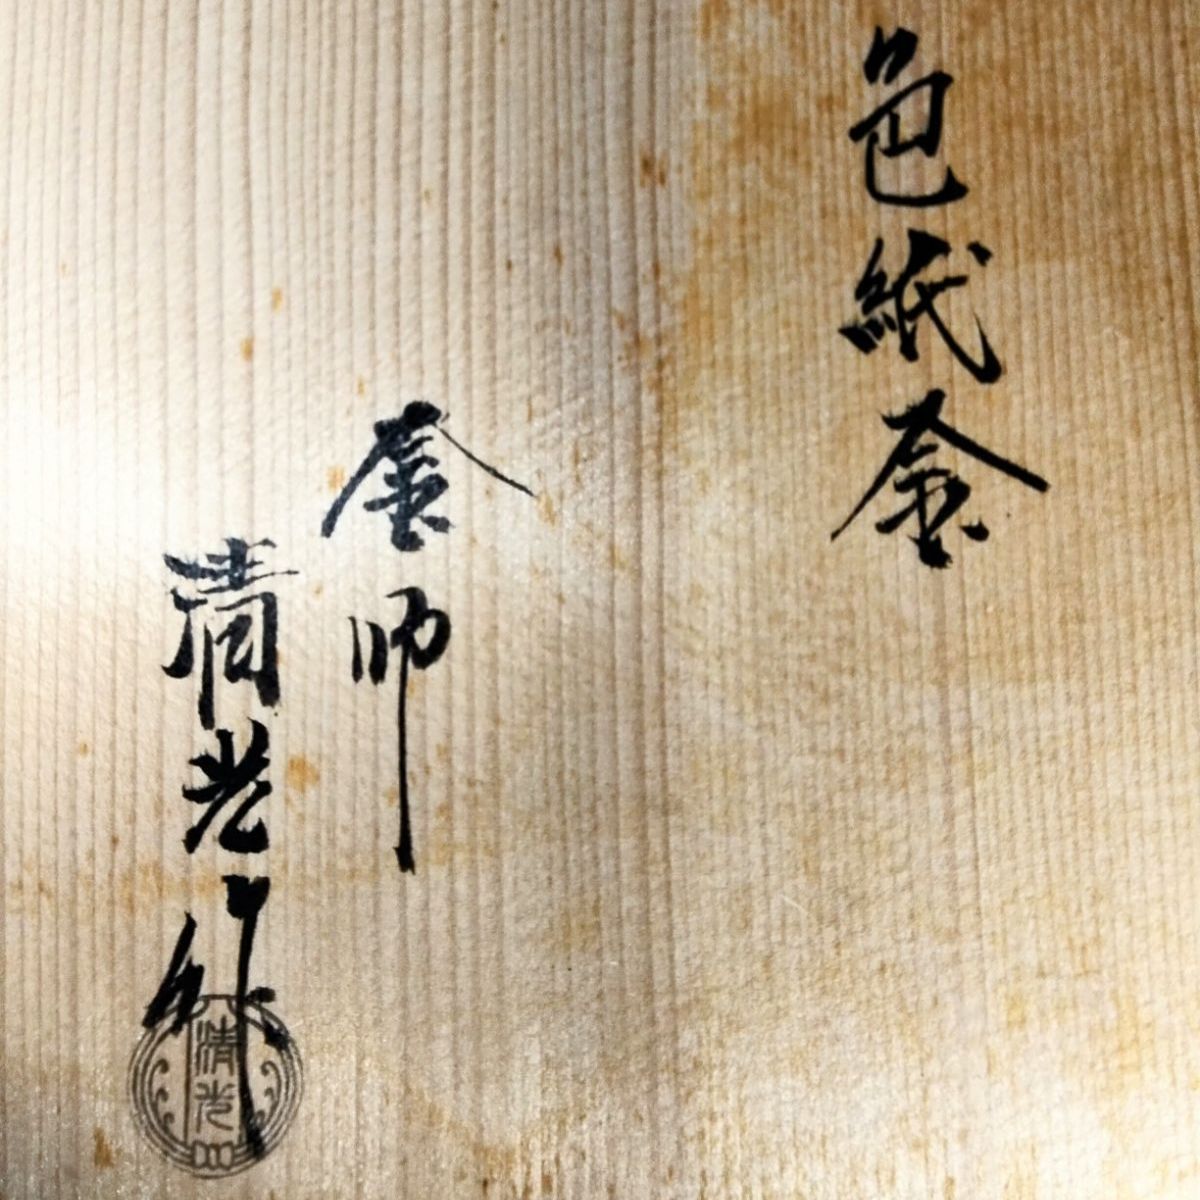 色紙釜
釜師
清光作
清光